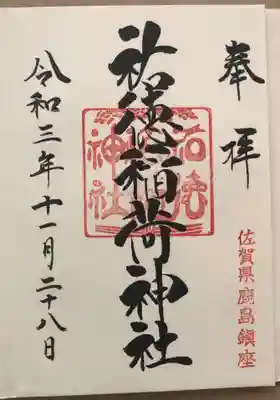 奉拝
佐賀県鹿島鎮座
祐徳稲荷神社
祐徳神社
令和三年十一月二十八日